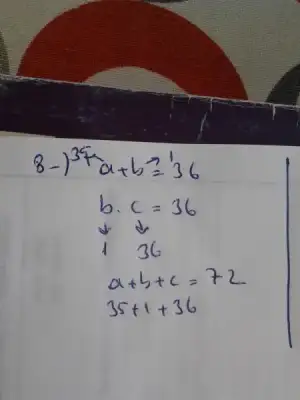 8-) 35 a+b = 1 36
b. c = 36
↓ ↓
1 36
a+b+c = 72
35+1+36